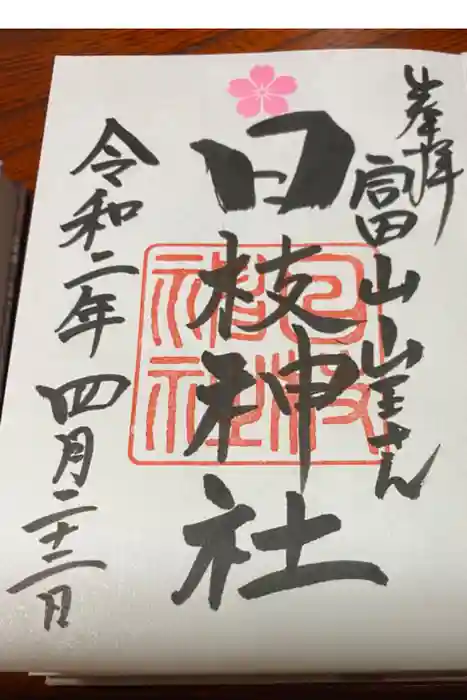 奉拝
富山山王さん
日枝神社
日枝神社
令和二年四月二十二日